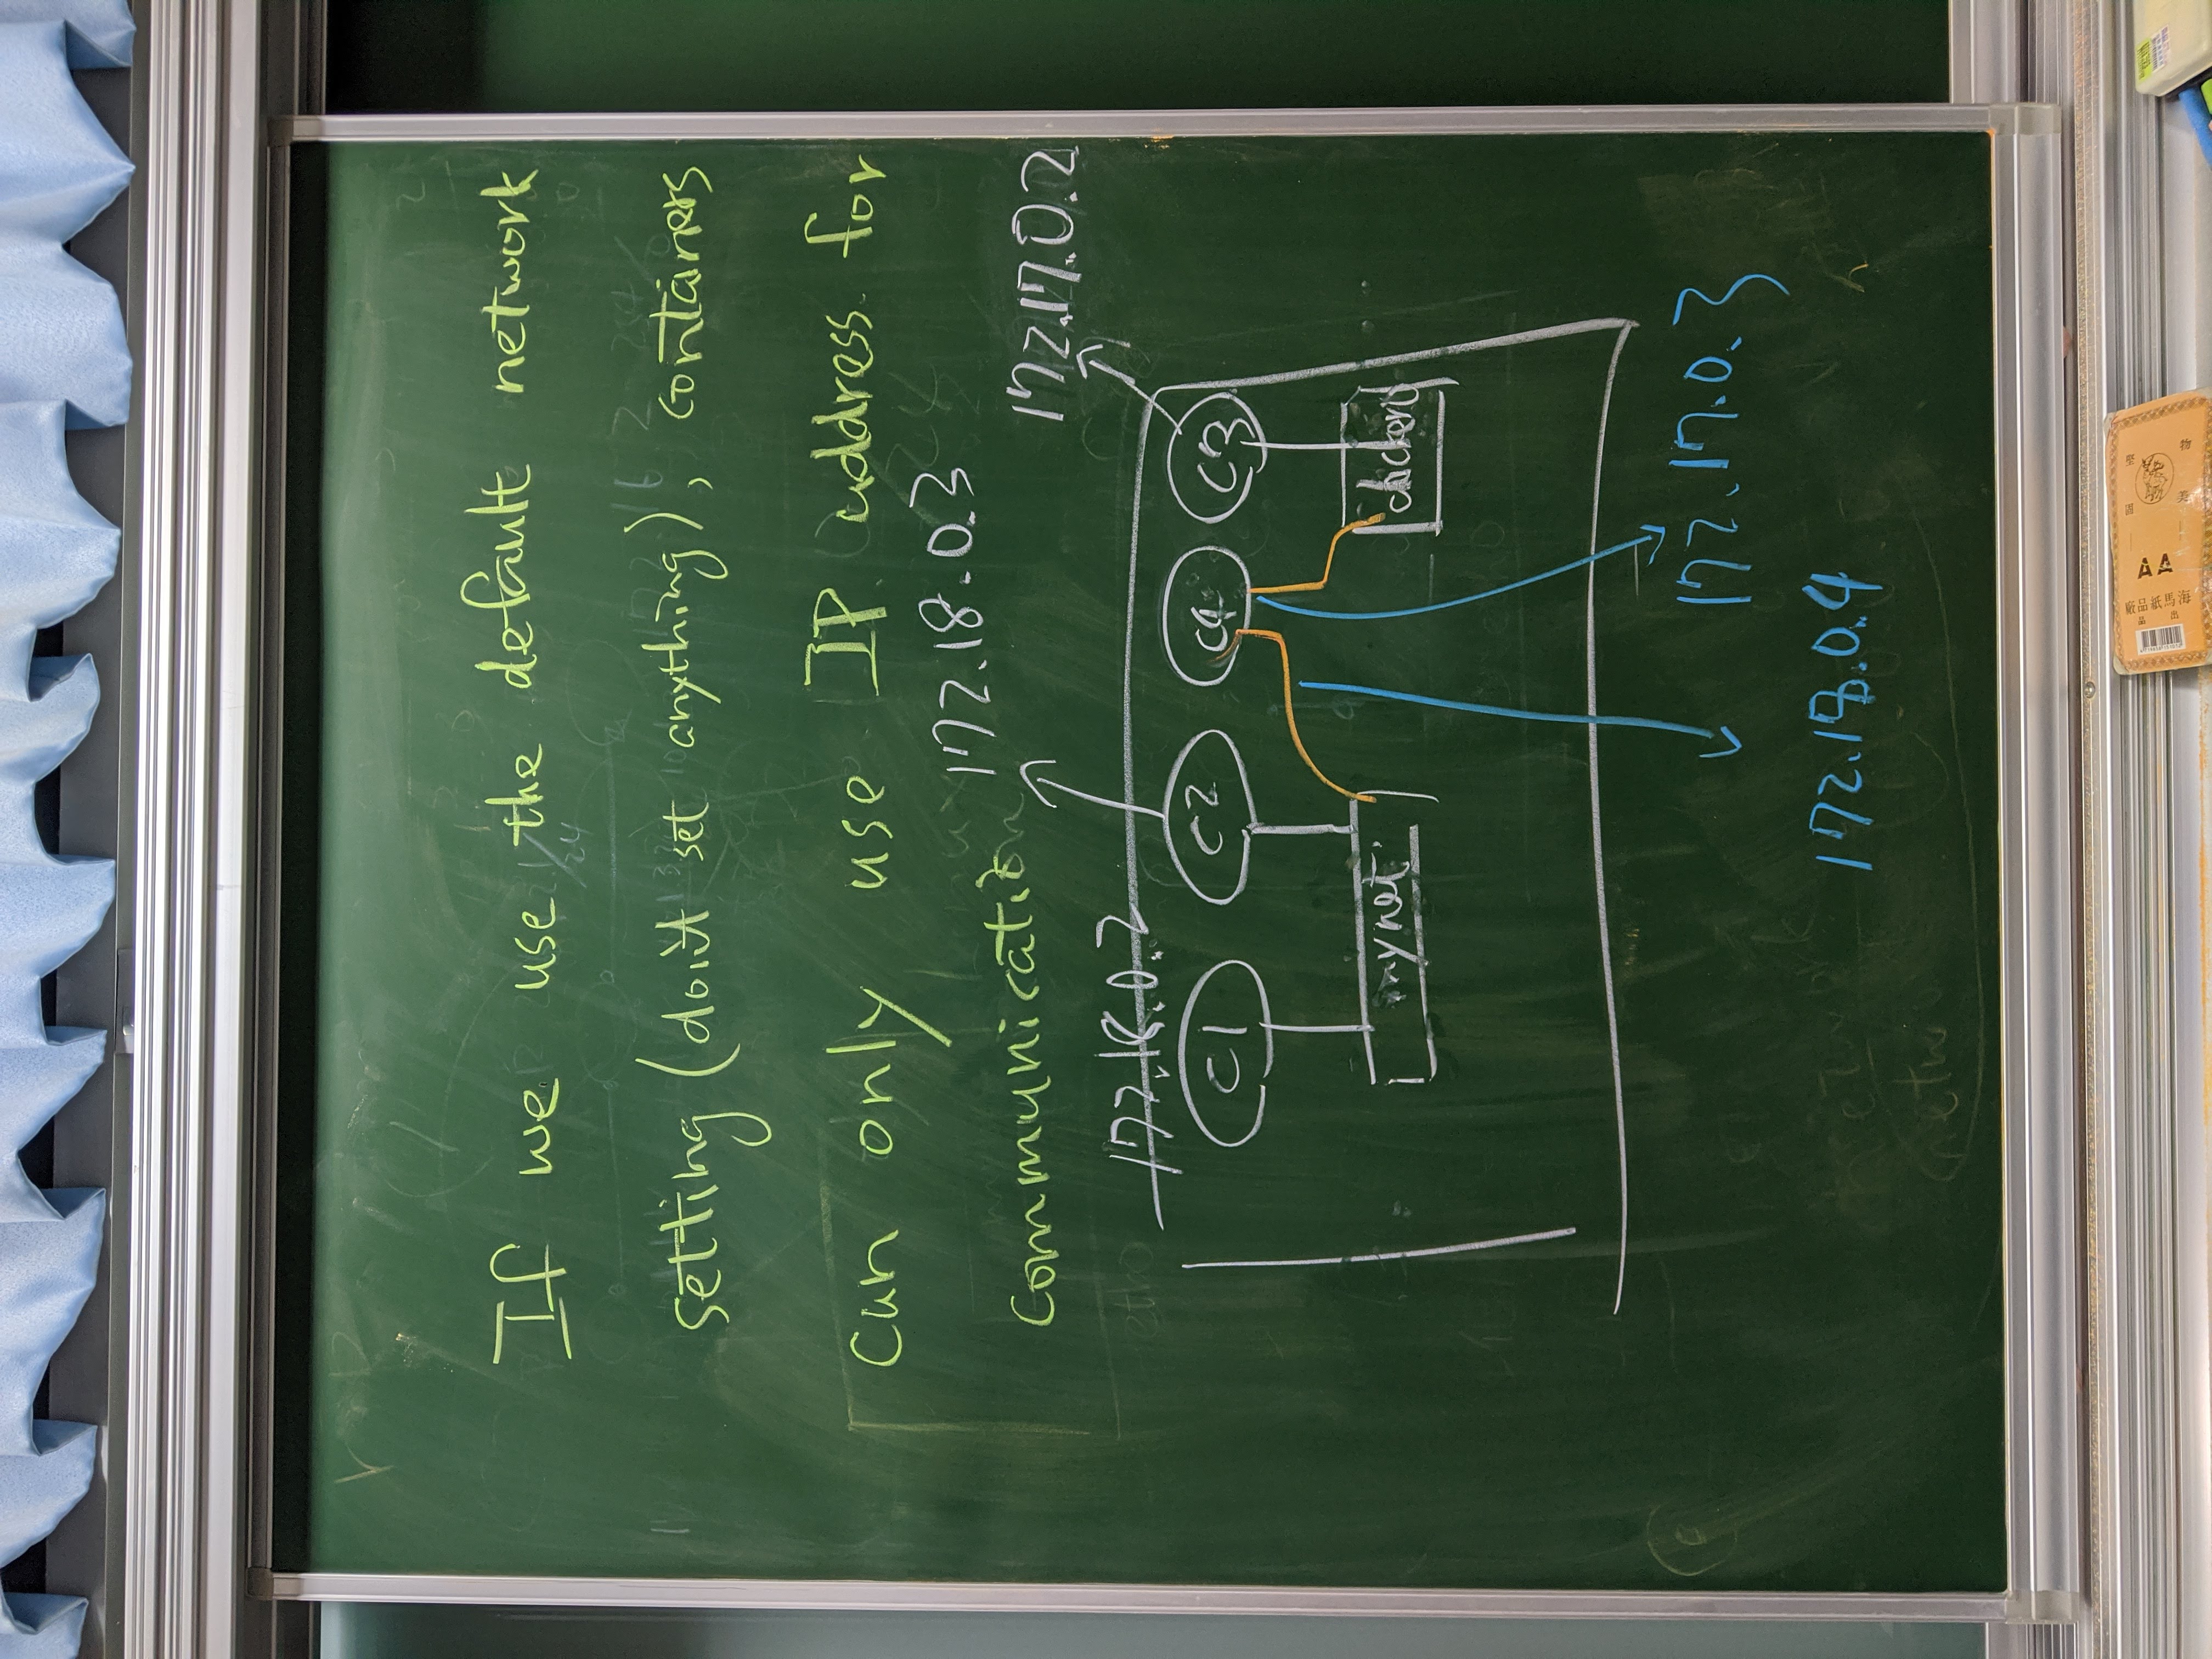 If we use the default network
setting (don't set anything), containers
can only use IP address for
communication
172.18.0.3
172.17.0.2
172.18.0.2
C1 C2 C4 C3
mynet docker0
172.17.0.3
172.18.0.4
AA